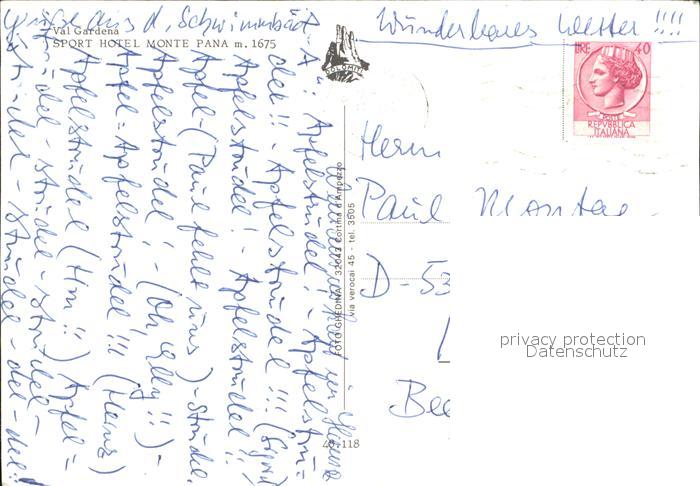 Grüße aus d. Schwimmbad
Val Gardena
SPORT HOTEL MONTE PANA m. 1675
Wunderbares Wetter !!!!
DOLOMITI
LIRE 40
POSTE
REPVBBLICA
ITALIANA
"A": Apfelstrudel! - Apfelstru=
del!! - Apfelstrudel!!!
Apfelstrudel! - Apfelstrudel!!
Apfel-(Paul fehlt uns)-Strudel.
Apfelstrudel! - (Oh !!) -
Apfel=Apfelstrudel!!! (Hans)
Apfelstrudel (Hm!!) Apfel=
strudel-strudel-Strudel-
strudel-strudel-del-del!!
FOTO GHEDINA - 32043 Cortina d'Ampezzo
via verocai 45 - tel. 3605
46.118
Herrn
Paul
D-53
privacy protection
Datenschutz